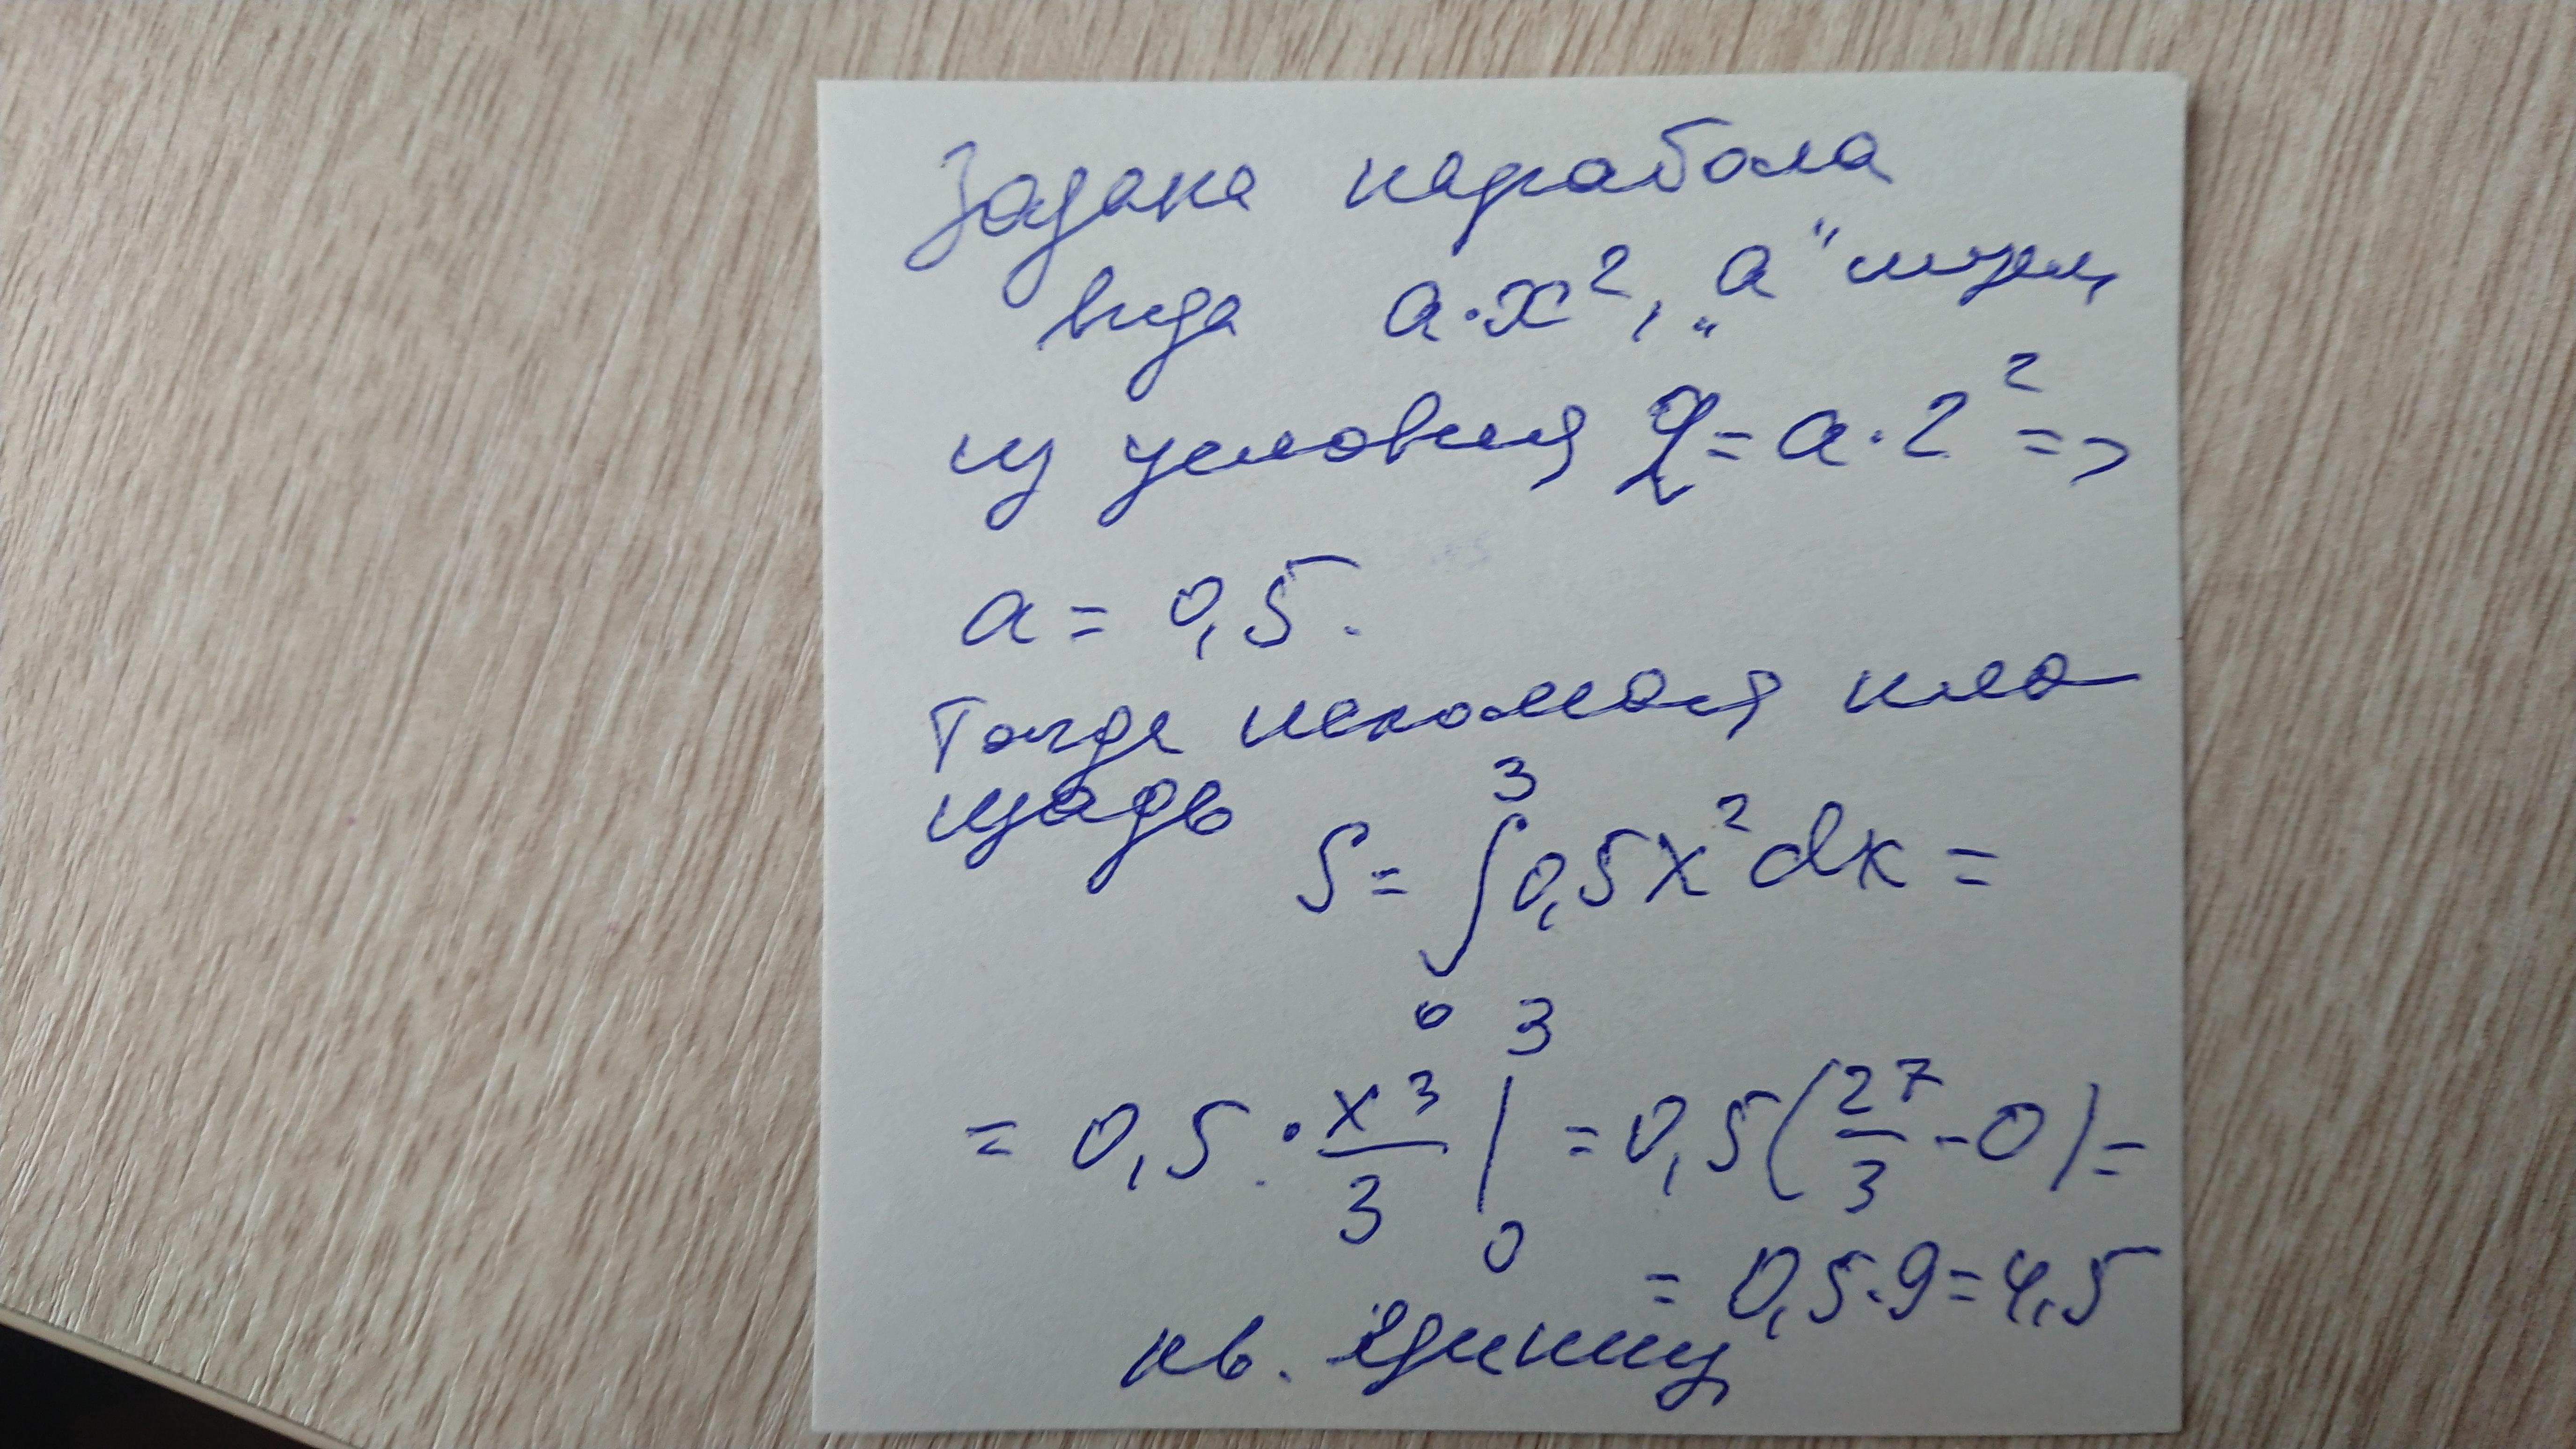 Задана парабола
вида a·x², „a“ ищем
из условия 2=a·2² =>
a = 0,5.
Тогда искомая пло-
щадь S = ∫₀³ 0,5x²dx =
= 0,5·x³/3 |₀³ = 0,5(27/3-0)=
= 0,5·9=4,5
кв. единиц